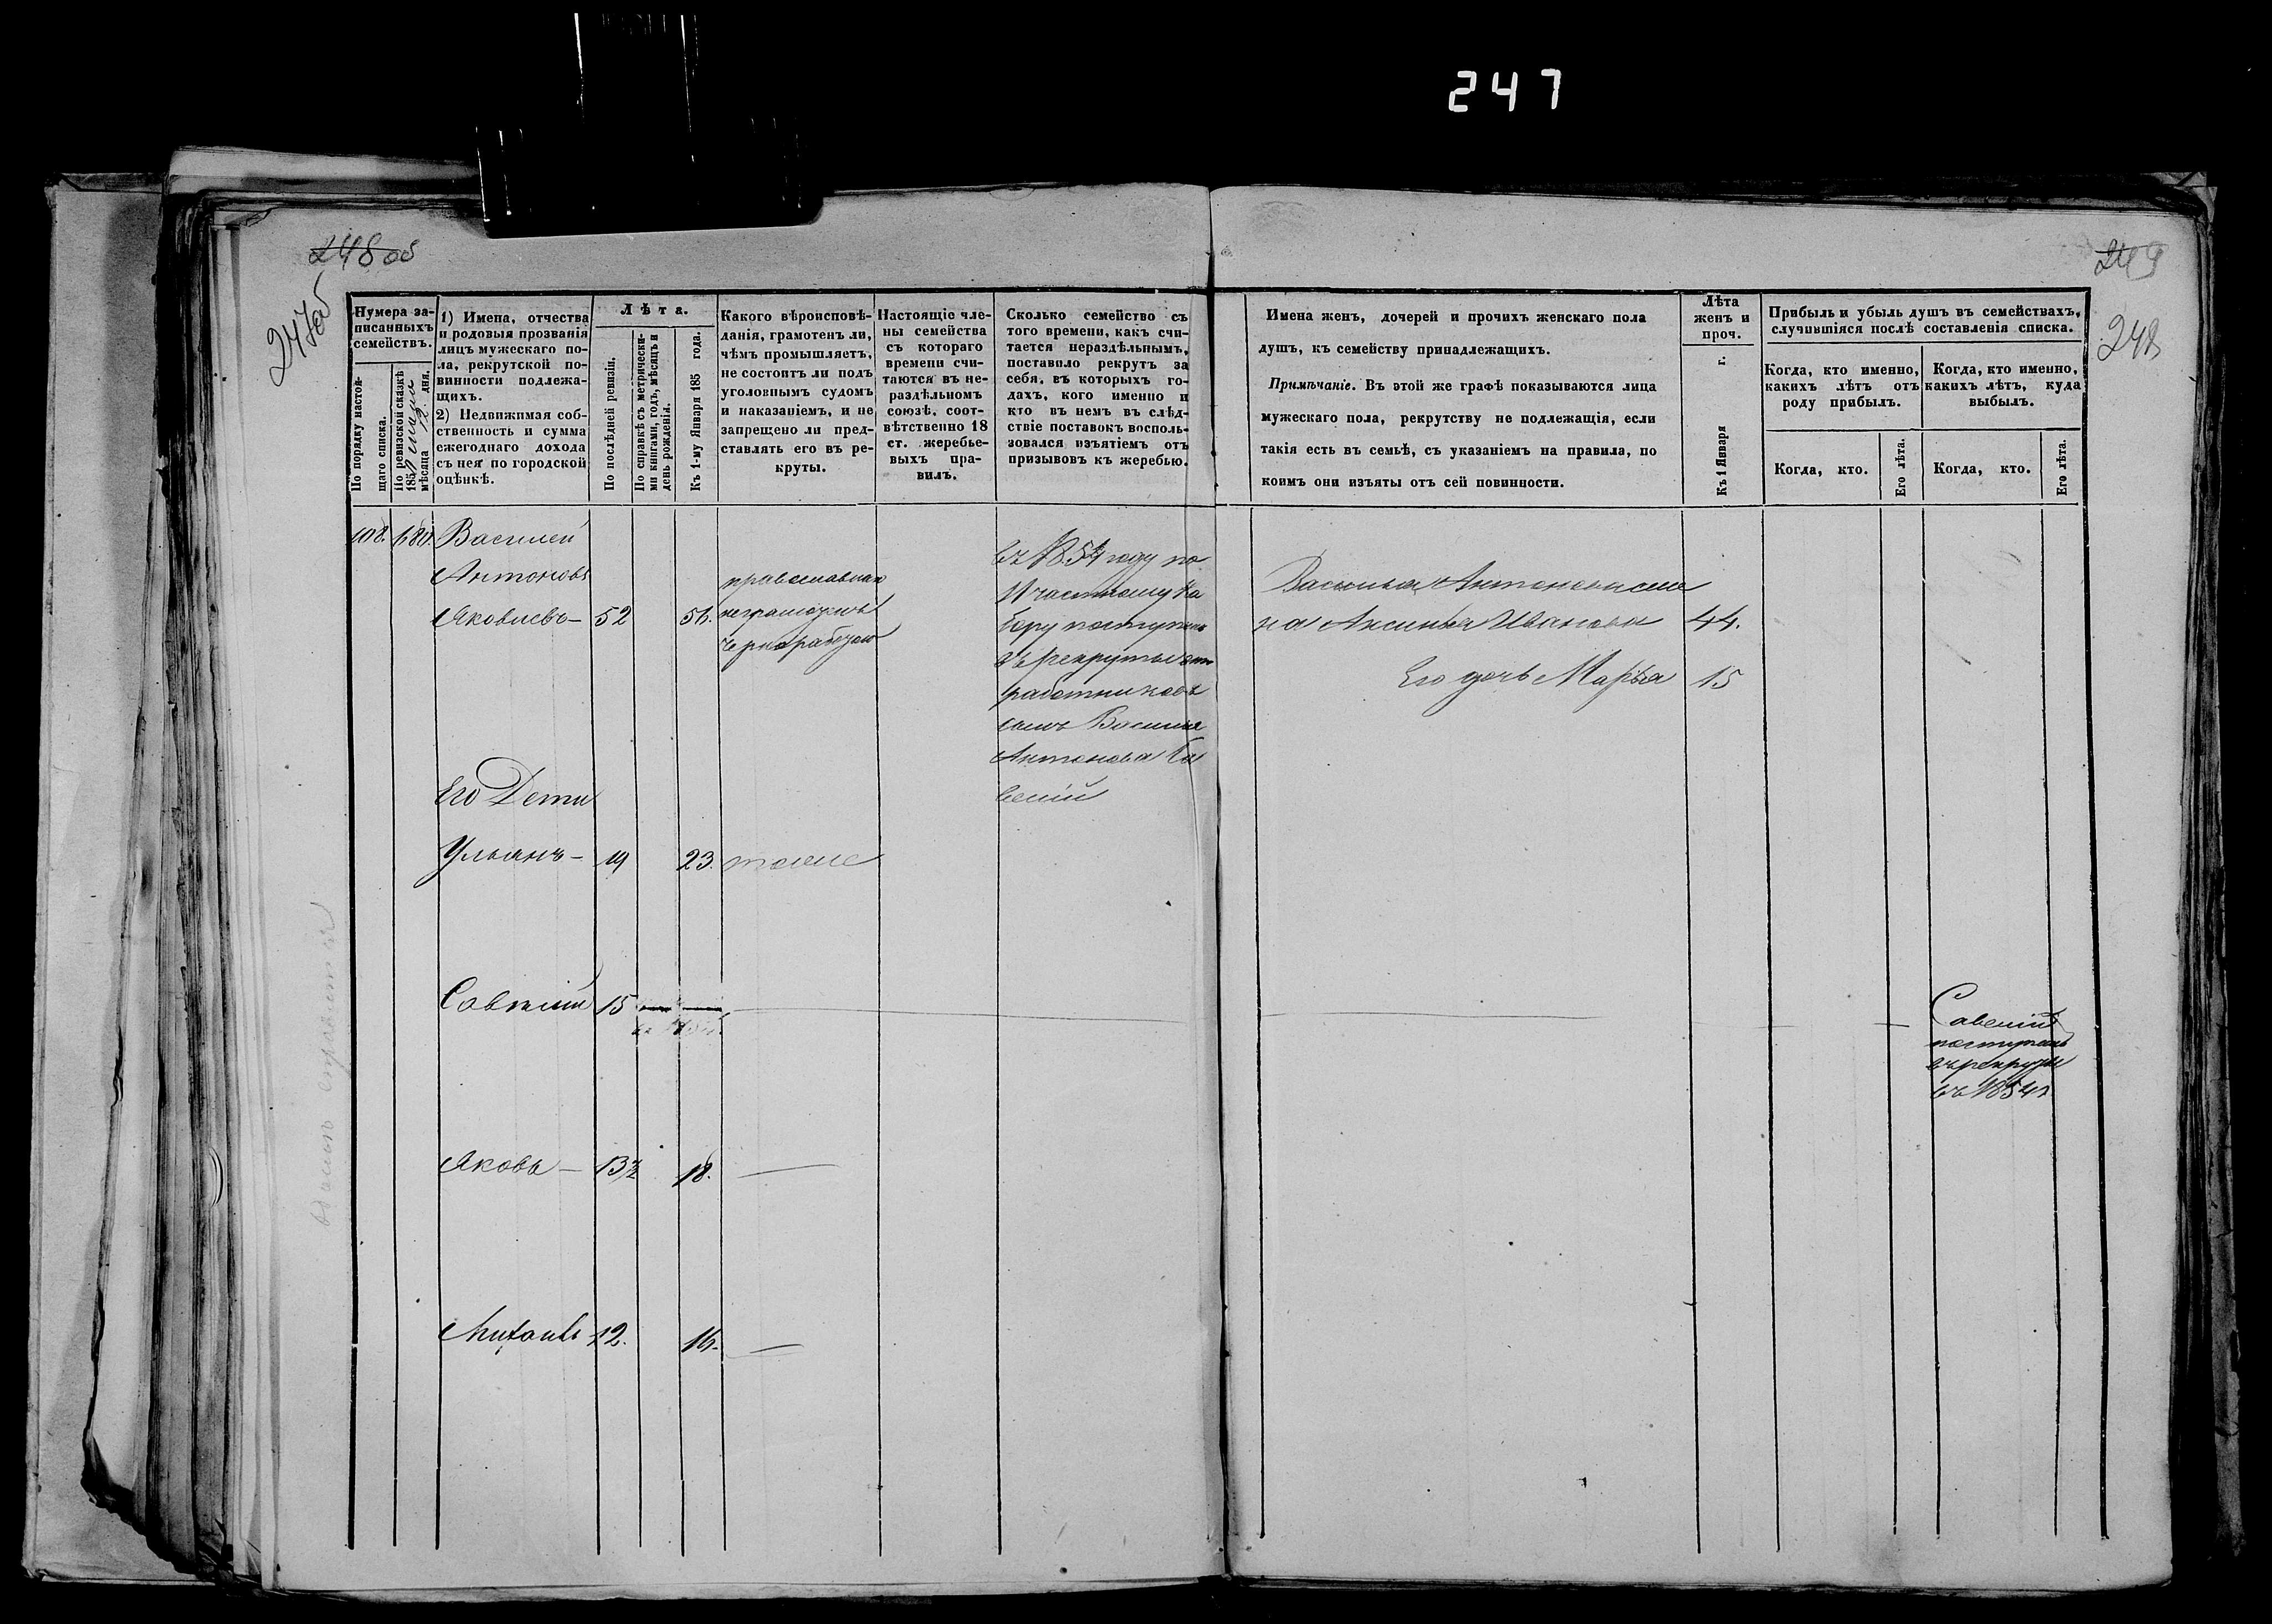 247
248 об
247об
249
248
Нумера за-
писанныхъ
семействъ.
По порядку настоя-
щаго списка.
По ревизской сказкѣ
185
мѣсяца 12. дня.
1) Имена, отчества
и родовыя прозванія
лицъ мужескаго по-
ла, рекрутской по-
винности подлежа-
щихъ.
2) Недвижимая соб-
ственность и сумма
ежегоднаго дохода
съ нея по городской
оцѣнкѣ.
Лѣта.
По послѣдней ревизіи.
По справкѣ съ метрически-
ми книгами, годъ, мѣсяцъ и
день рожденія.
Къ 1-му Января 185 года.
Какого вѣроисповѣ-
данія, грамотенъ ли,
чѣмъ промышляетъ,
не состоитъ ли подъ
уголовнымъ судомъ
и наказаніемъ, и не
запрещено ли пред-
ставлять его въ ре-
круты.
Настоящіе чле-
ны семейства
съ котораго
времени счи-
таются въ не-
раздѣльномъ
союзѣ, соот-
вѣтственно 18
ст. жеребье-
выхъ пра-
вилъ.
Сколько семейство съ
того времени, какъ счи-
тается нераздѣльнымъ,
поставило рекрутъ за
себя, въ которыхъ го-
дахъ, кого именно и
кто въ немъ въ слѣд-
ствіе поставокъ восполь-
зовался изъятіемъ отъ
призывовъ къ жеребью.
Имена женъ, дочерей и прочихъ женскаго пола
душъ, къ семейству принадлежащихъ.
Примѣчаніе. Въ этой же графѣ показываются лица
мужескаго пола, рекрутству не подлежащія, если
такія есть въ семьѣ, съ указаніемъ на правила, по
коимъ они изъяты отъ сей повинности.
Лѣта
женъ и
проч.
Къ 1 Января г.
Прибыль и убыль душъ въ семействахъ,
случившіяся послѣ составленія списка.
Когда, кто именно,
какихъ лѣтъ отъ
роду прибылъ.
Когда, кто именно,
какихъ лѣтъ, куда
выбылъ.
Когда, кто.
Его лѣта.
Когда, кто.
Его лѣта.
108. 180. Василей
Антоновъ
Яковлевъ — 52 56.
православнаго
неграмотный
чернорабочій
въ 1854 году по
11 частному на
бору поступилъ
въ рекруты отъ
работниковъ
сынъ Василья
Антонова Са
велій
Василья Антонова же
на Аксинья Иванова 44.
Его дочь Марья 15
Его Дети
Ульянъ — 19 23. тоже
Савелій 15 — —
въ 1854
Савелій
поступилъ
въ рекруты
въ 1854 г
Яковъ — 13½ 18. —
Михаилъ 12. 16. —